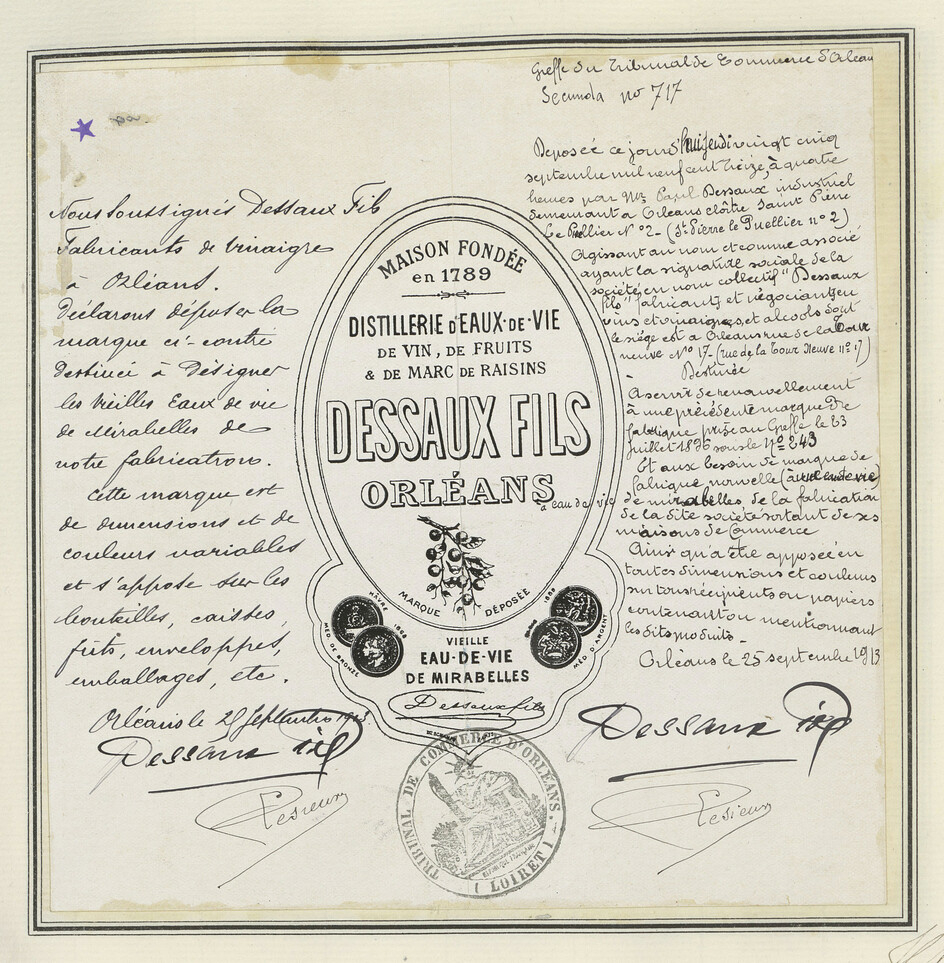 Nous Soussignés Dessaux Fils
Fabricants de Vinaigre
à Orléans.
Déclarons déposer la
marque ci-contre
destinée à Désigner
les Vieilles Eaux de vie
de Mirabelles de
notre fabrication.
Cette marque est
de dimensions et de
couleurs variables
et s'appose sur les
bouteilles, caisses,
fûts, enveloppes,
emballages, etc.
Orléans le 25 Septembre 1913
Dessaux fils
MAISON FONDÉE
en 1789
DISTILLERIE d'EAUX-DE-VIE
DE VIN, DE FRUITS
& DE MARC DE RAISINS
DESSAUX FILS
ORLÉANS
MARQUE DÉPOSÉE
HÂVRE 1868
MÉD. DE BRONZE
MÉD. D'ARGENT
VIEILLE
EAU-DE-VIE
DE MIRABELLES
Dessaux fils
TRIBUNAL DE COMMERCE D'ORLÉANS.
(LOIRET)
Greffe du Tribunal de Commerce d'Orléans
Secunda no 717
Déposée ce jourd'hui jeudi vingt cinq
septembre mil neuf cent treize, à quatre
heures par Mr Dessaux, industriel
demeurant à Orléans cloître Saint Pierre
Le Puellier No 2 - (St Pierre le Puellier no 2)
Agissant au nom et comme associé
ayant la signature sociale de la
société en nom collectif "Dessaux
fils" fabricants et négociants en
vins et vinaigres, et alcools dont
le siège est à Orléans rue de la Tour
neuve No 17 - (rue de la Tour Neuve no 17)
Destinée
A servir de renouvellement
à une précédente marque de
fabrique prise au Greffe le 23
Juillet 1896 sous le No 243
Et aux besoin de marque de
fabrique nouvelle
à eau de vie
de mirabelles de la fabrication
de la dite société sortant de ses
maisons de Commerce
Ainsi qu'à être apposée en
toutes dimensions et couleurs
sur tous récipients ou papiers
contenant ou mentionnant
les dits produits -
Orléans le 25 septembre 1913
Dessaux fils